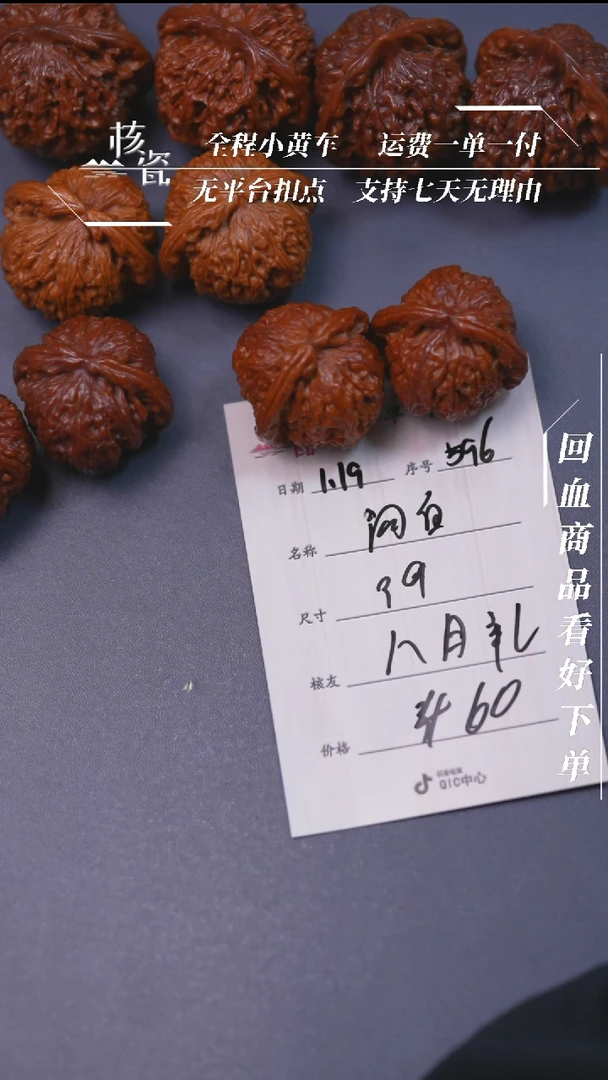 核瓷
全程小黄车 运费一单一付
无平台扣点 支持七天无理由
回血商品看好下单
日期 1.19 序号 596
名称
尺寸 39
核友 八月礼
价格 ¥60
QIC中心